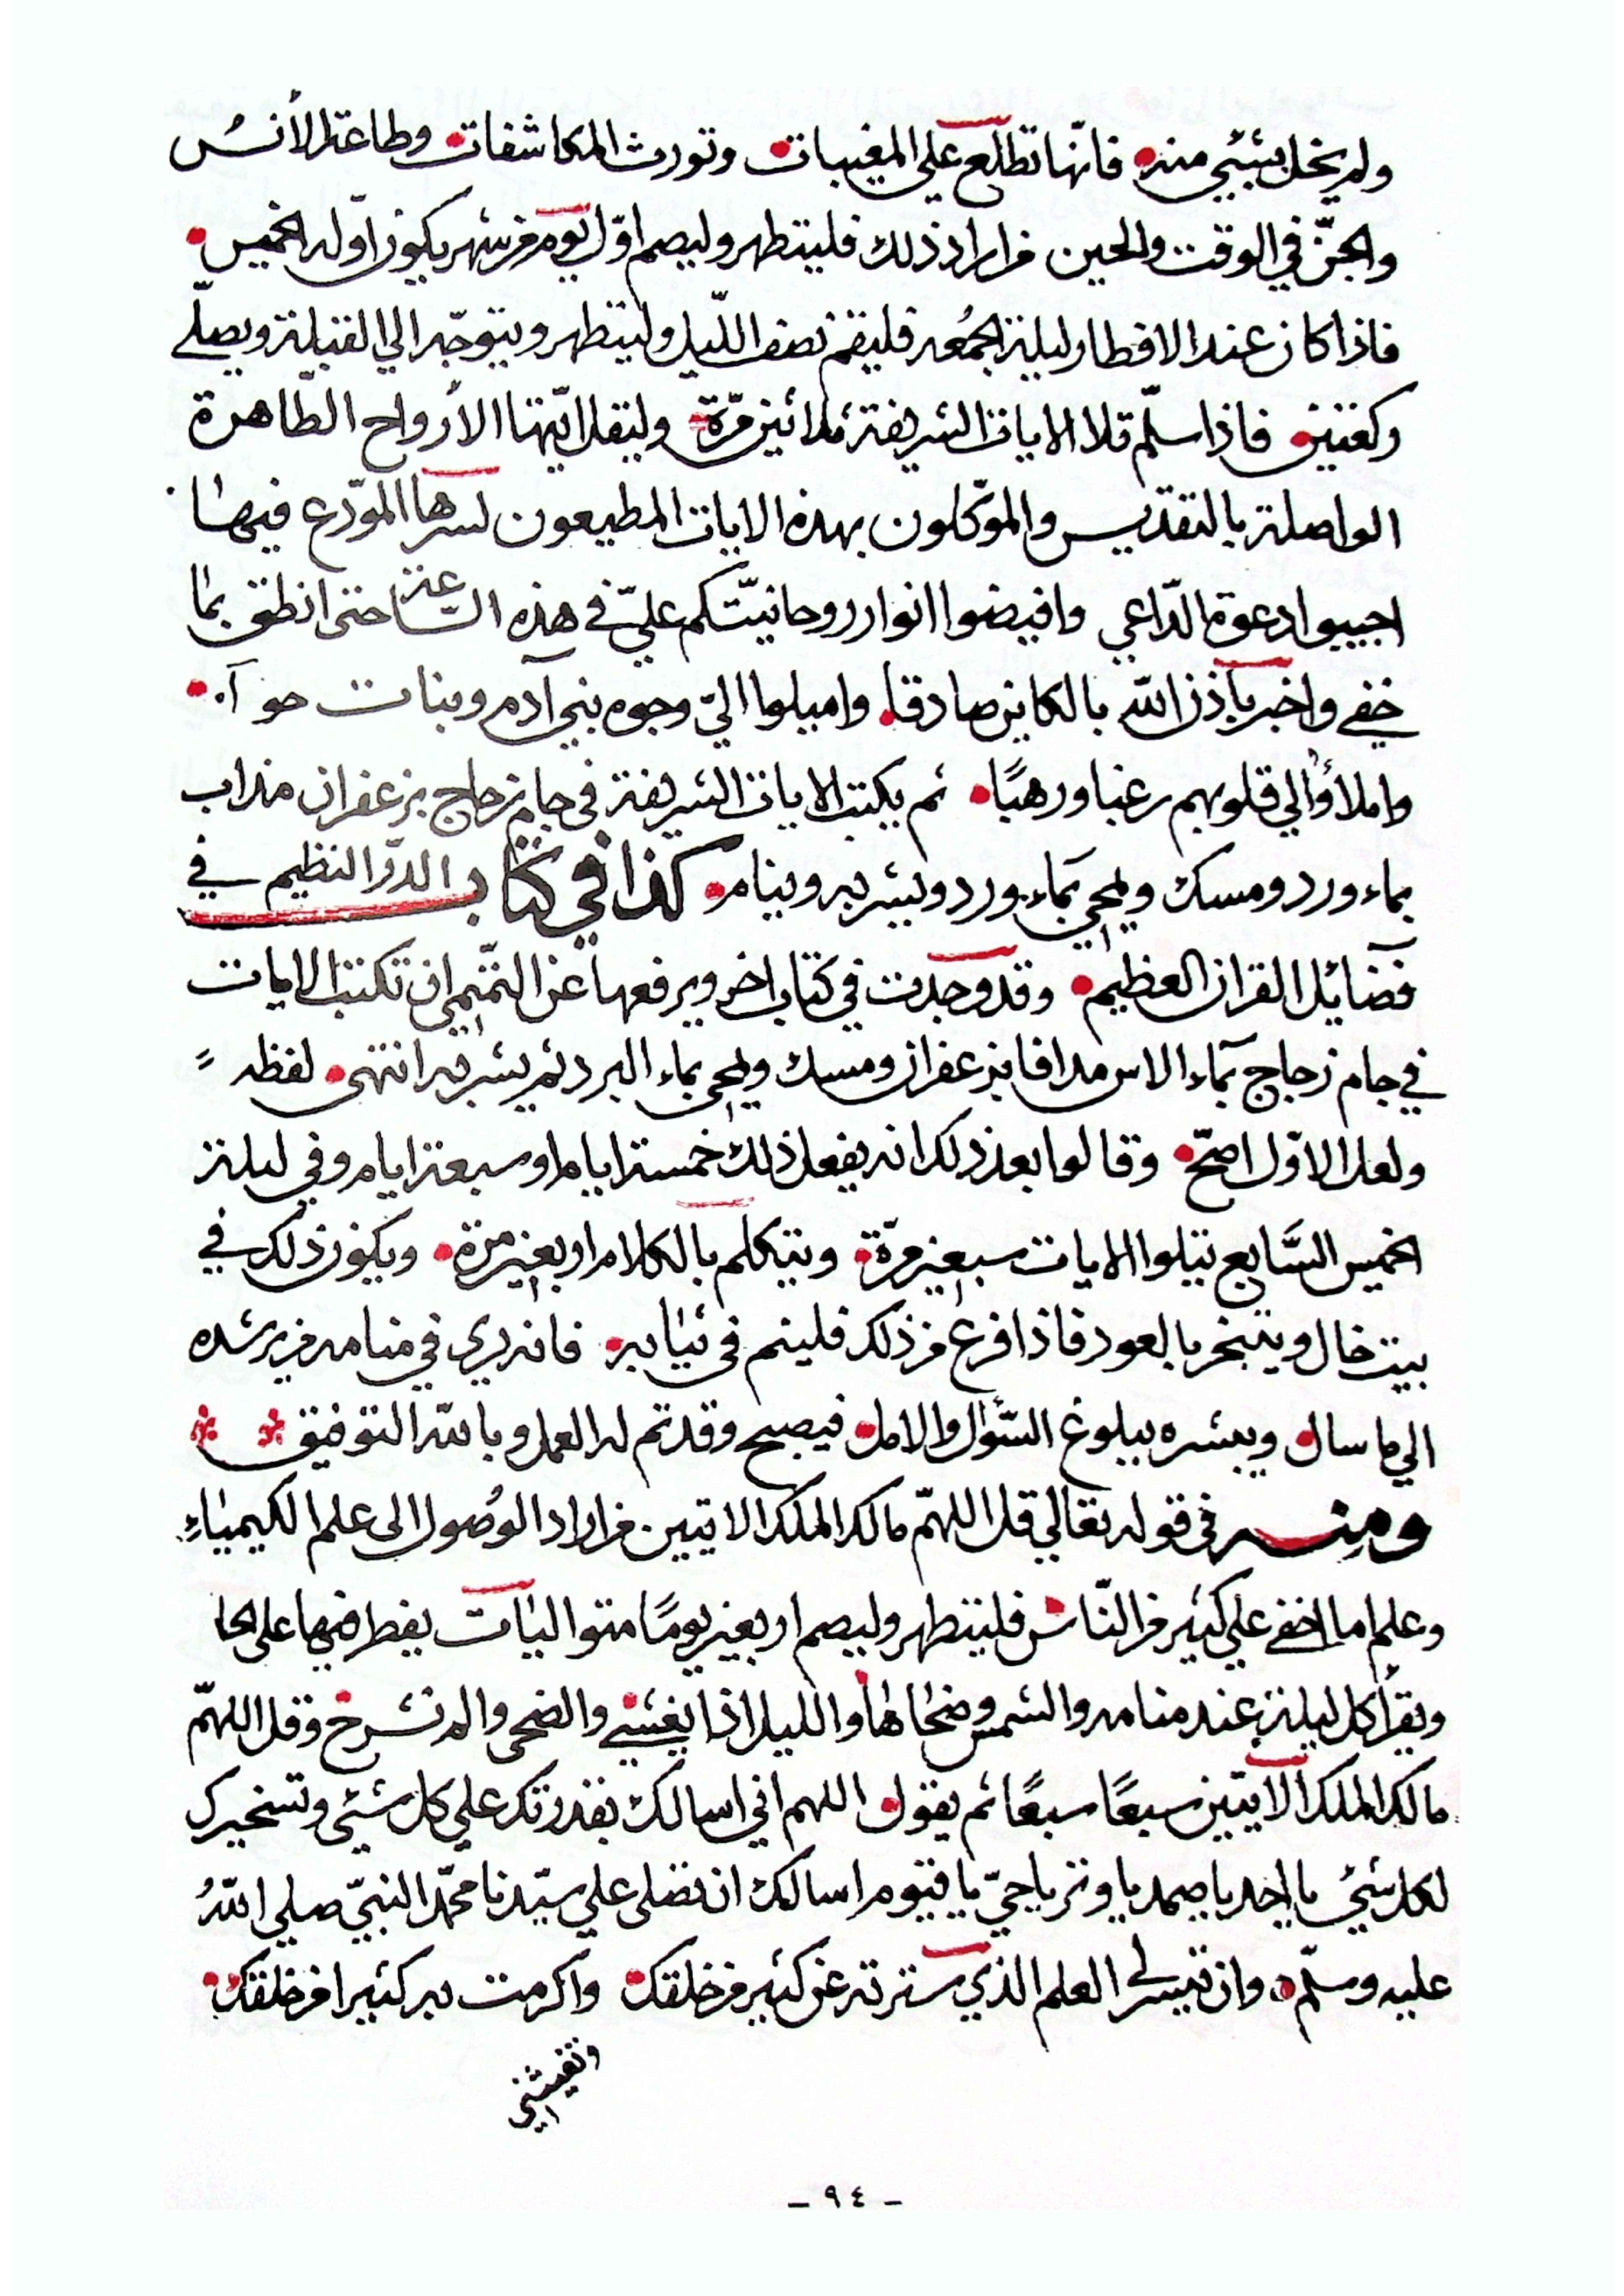 ولم يخل بشيئ منه فانّها تطلع علي المغيبات وتورث المكاشفات وطاعة الأنسُ
والجنّ في الوقت والحين فمن اراد ذلك فليتطهر وليصم اوّل يوم من شهر يكون اوّله الخميس
فاذا كان عند الافطار ليلة الجمُعه فليقم نصف اللّيل وليتطهر ويتوجّه الي القبلة ويصلّي
ركعتين فاذا سلّم تلا الايات الشريفة ثلاثين مرّة وليقل ايّتها الأرواح الطّاهرة
الواصلة بالتقديس والموكّلون بهذه الايات المطيعون لسرها المودّع فيها
اجيبوا دعوة الدّاعي وافيضوا انوار روحانيّتكم عليّ في هذه الساعة حتى انطق بما
خفي واخبر بأذن الله بالكاين صادقا واميلوا اليّ وجوه بني آدم وبنات حوآء
واملأوا لي قلوبهم رغبا ورهبًا ثم يكتب الايات الشريفة في جام زجاج بزعفران مذاب
بماء ورد ومسك ويمحي بماء ورد ويشربه وينام كذا في كتاب الدرّ النظيم في
فضائل القران العظيم وقد وجدت في كتاب اخر ويرفعها عن التميمي ان تكتب الايات
في جام زجاج بماء الاس مدافا بزعفران ومسك ويمحى بماء البرد ثم يشربه انتهى لفظه
ولعل الاوّل اصحّ وقالوا بعد ذلك انه يفعل ذلك خمسة ايام او سبعة ايام وفي ليلة
الخميس السّابع يتلوا الايات سبعين مرّة ويتكلم بالكلام اربعين مرة ويكون ذلك في
بيت خال ويتبخر بالعود فاذا فرغ من ذلك فلينم في ثيابه فانه يري في منامه من يرشده
الي ما سال ويبشره ببلوغ السّؤل والامل فيصبح وقد تم له العمل وبالله التوفيق
ومنه في قوله تعالي قل اللهمّ مالك الملك الايتين من اراد الوُصول الى علم الكيمياء
وعلم اما اخفي علي كثير من النّاس فليتطهر وليصم اربعين يومًا متواليات يفطر فيها على الحلا
ويقرأ كل ليلة عند منامه والشمس وضحاها والليل اذا يغشي والضحى والم نشرح وقل اللهمّ
مالك الملك الايتين سبعًا سبعًا ثم يقول اللهم اني اسالك بقدرتك علي كل شئي وتسخيرك
لكل شيئ يا احد يا صمد يا وتر يا حيّ يا قيّوم اسالك ان تصلى علي سيّدنا محمّد النبيّ صلي اللهُ
عليه وسلّم وان تيسر لي العلم الذي سترته عن كثير من خلقك واكرمت به كثيرا من خلقك
- ٩٤ -